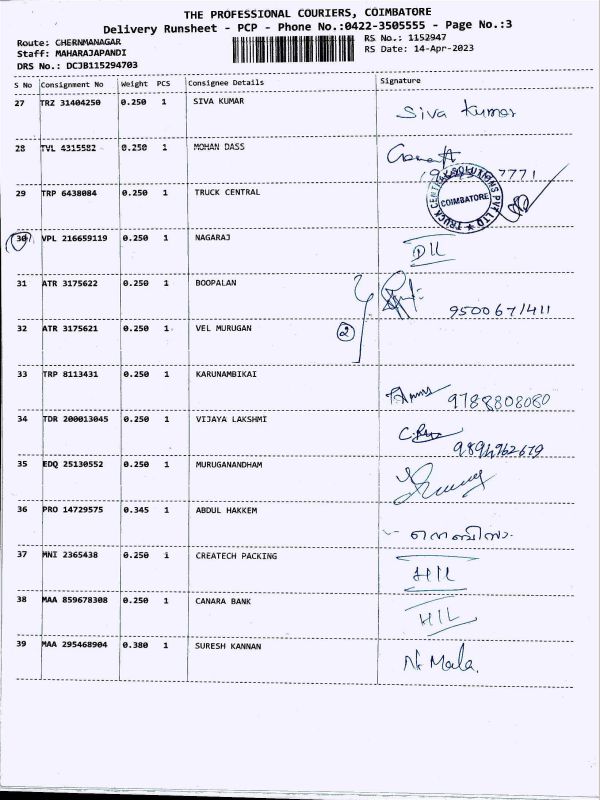 THE PROFESSIONAL COURIERS, COIMBATORE
Delivery Runsheet - PCP - Phone No.:0422-3505555 - Page No.:3
Route: CHERNMANAGAR
Staff: MAHARAJAPANDI
DRS No.: DCJB115294703
RS No.: 1152947
RS Date: 14-Apr-2023
S No Consignment No Weight PCS Consignee Details Signature
27 TRZ 31404250 0.250 1 SIVA KUMAR Siva Kumar
28 TVL 4315582 0.250 1 MOHAN DASS
7771
29 TRP 6438084 0.250 1 TRUCK CENTRAL
TRUCK CENTRAL SOLUTIONS PVT LTD
COIMBATORE
30 VPL 216659119 0.250 1 NAGARAJ
31 ATR 3175622 0.250 1 BOOPALAN
9500671411
32 ATR 3175621 0.250 1 VEL MURUGAN
2
33 TRP 8113431 0.250 1 KARUNAMBIKAI
9788808080
34 TDR 200013045 0.250 1 VIJAYA LAKSHMI
9894962679
35 EDQ 25130552 0.250 1 MURUGANANDHAM
36 PRO 14729575 0.345 1 ABDUL HAKKEM
37 MNI 2365438 0.250 1 CREATECH PACKING
38 MAA 859678308 0.250 1 CANARA BANK
39 MAA 295468904 0.380 1 SURESH KANNAN
N. Mala.